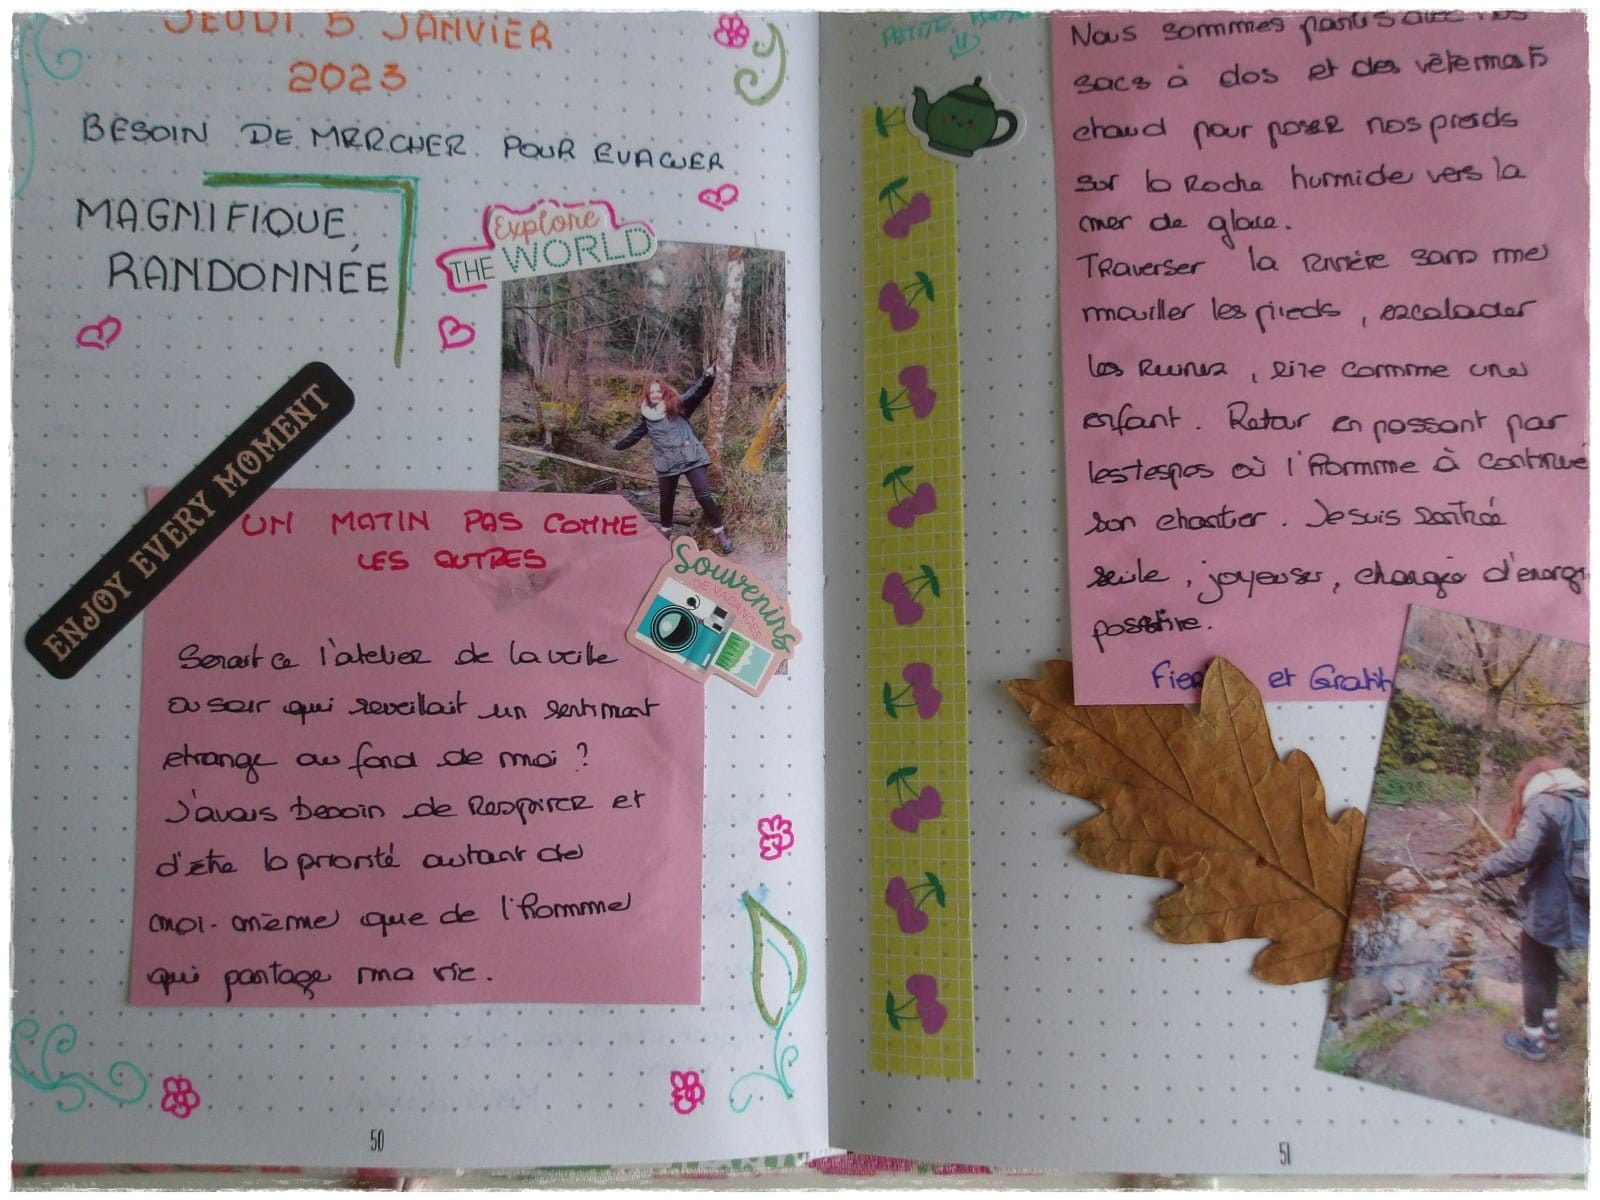 JEUDI 5 JANVIER
2023
BESOIN DE MARCHER POUR EVACUER
MAGNIFIQUE,
RANDONNÉE
Explore
THE WORLD
ENJOY EVERY MOMENT
UN MATIN PAS COMME
LES AUTRES
Souvenirs
DE VACANCES
Serait ce l'atelier de la veille
au soir qui reveillait un sentiment
etrange au fond de moi ?
J'avais besoin de Respirer et
d'être la priorité autant de
moi-même que de l'homme
qui partage ma vie.
50
PETITE
Nous sommes partis avec nos
sacs à dos et des vêtements
chaud pour poser nos pieds
sur la Roche humide vers la
mer de glace.
Traverser la Rivière sans me
mouiller les pieds, escalader
les Ruines, rire comme une
enfant. Retour en passant par
où l'homme à continué
son chantier. Je suis rentrée
seule, joyeuse, chargée d'énergi
positive.
et Gratit
51